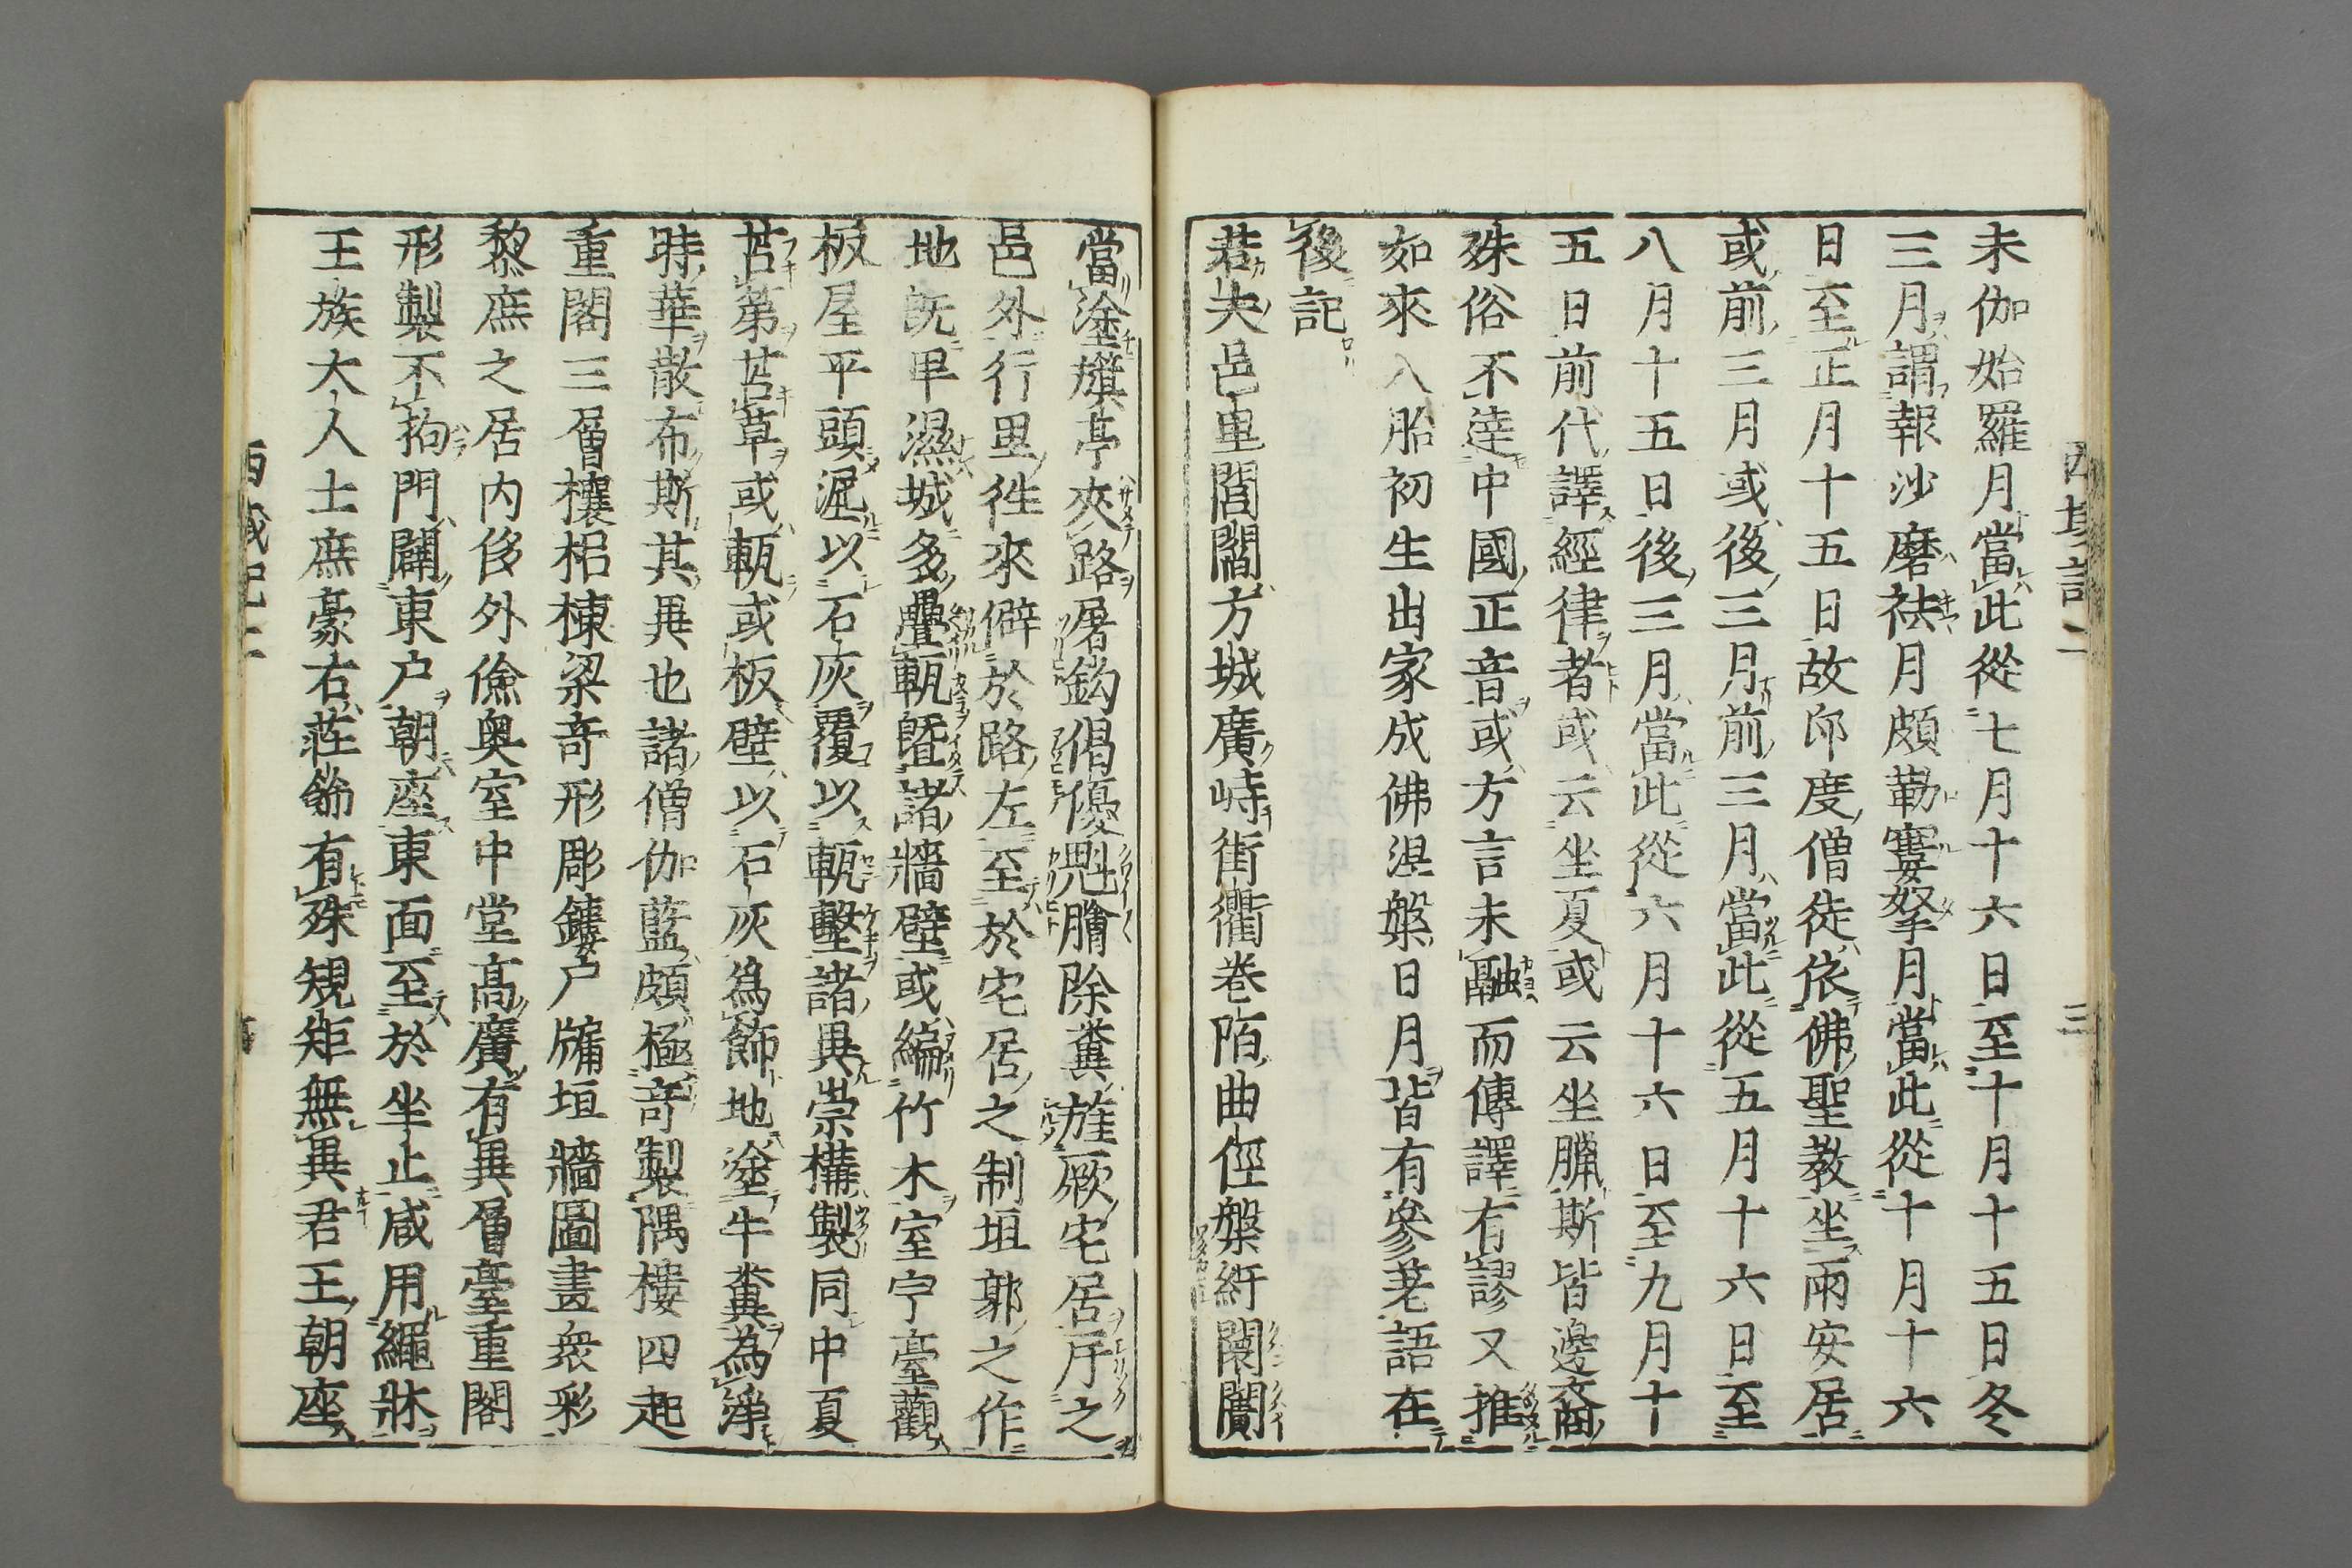 西域記二
三
未伽始羅月當此從七月十六日至十月十五日冬
三月謂報沙磨祛月頗勒窶拏月當此從十月十六
日至正月十五日故印度僧徒依佛聖教坐兩安居
或前三月或後三月前三月當此從五月十六日至
八月十五日後三月當此從六月十六日至九月十
五日前代譯經律者或云坐夏或云坐臘斯皆邊裔
殊俗不達中國正音或方言未融而傳譯有謬又推
如來入胎初生出家成佛涅槃日月皆有參差語在
後記
若夫邑里閭閻方城廣峙街衢巷陌曲徑槃紆闤闠
當塗旗亭夾路屠釣倡優魁膾除糞旌厥宅居斥之
邑外行里往來僻於路左至於宅居之制垣郭之作
地既卑濕城多疊甎曁諸牆壁或編竹木室宇臺觀
板屋平頭泥以石灰覆以甎墼諸異崇構製同中夏
苫茅苫草或甎或板壁以石灰爲飾地塗牛糞為淨
時華散布斯其異也諸僧伽藍頗極奇製隅樓四起
重閣三層榱梠棟梁奇形彫鏤户牖垣牆圖畫衆彩
黎庶之居内侈外儉奥室中堂高廣有異層臺重閣
形製不拘門闢東户朝座東面至於坐止咸用繩牀
王族大人士庶豪右莊飾有殊規矩無異君王朝座
西域記二